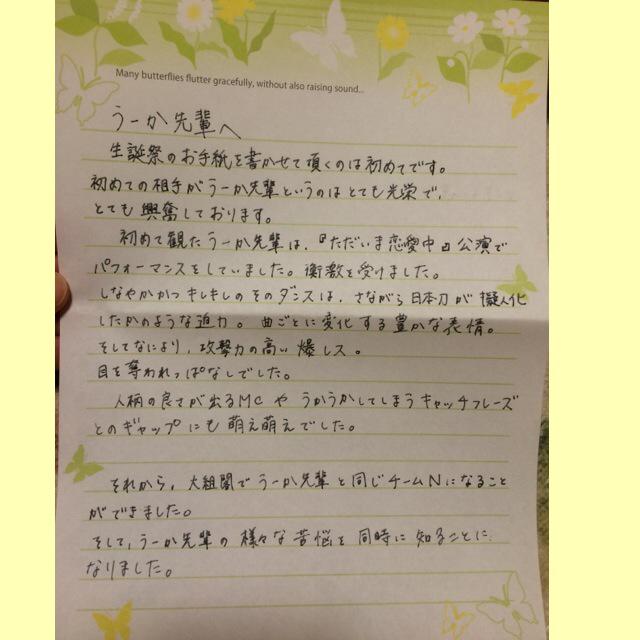 Many butterflies flutter gracefully, without also raising sound...
うーか先輩へ
生誕祭のお手紙を書かせて頂くのは初めてです。
初めての相手がうーか先輩というのはとても光栄で、
とても興奮しております。
初めて観たうーか先輩は、『ただいま恋愛中』公演で
パフォーマンスをしていました。衝激を受けました。
しなやかかつキレキレのそのダンスは、さながら日本刀が擬人化
したかのような迫力。曲ごとに変化する豊かな表情。
そしてなにより、攻撃力の高い爆レス。
目を奪われっぱなしでした。
人柄の良さが出るMCやうかうかしてしまうキャッチフレーズ
とのギャップにも萌え萌えでした。
それから、大組閣でうーか先輩と同じチームNになること
ができました。
そして、うーか先輩の様々な苦悩を同時に知ることに
なりました。